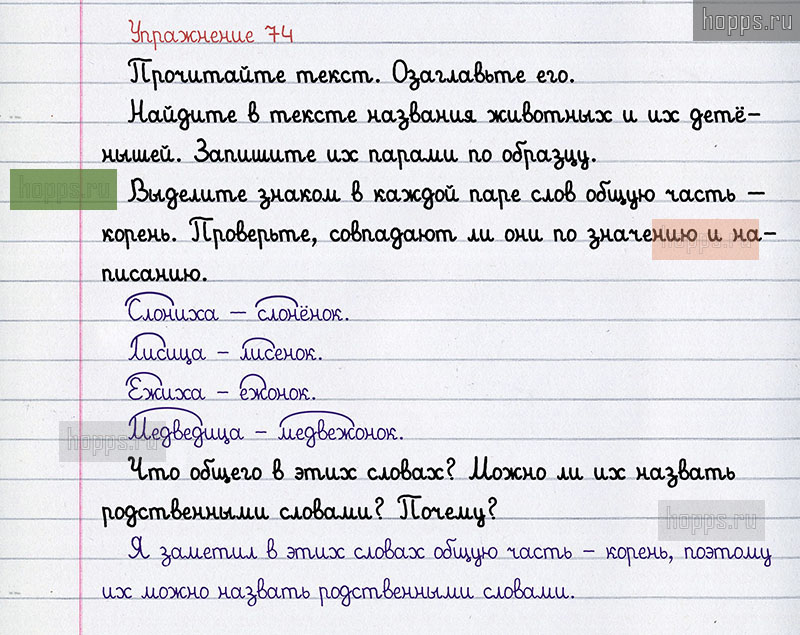 hopps.ru
Упражнение 74
Прочитайте текст. Озаглавьте его.
Найдите в тексте названия животных и их детё-
нышей. Запишите их парами по образцу.
hopps.ru
Выделите знаком в каждой паре слов общую часть –
корень. Проверьте, совпадают ли они по значению и на-
hopps.ru
писанию.
Слониха – слонёнок.
Лисица – лисенок.
Ежиха – ежонок.
Медведица – медвежонок.
hopps.ru
Что общего в этих словах? Можно ли их назвать
родственными словами? Почему?
hopps.ru
Я заметил в этих словах общую часть – корень, поэтому
их можно назвать родственными словами.